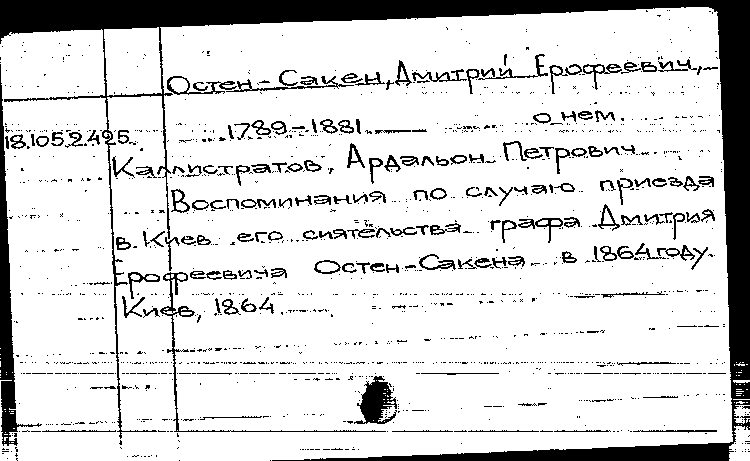 Остен-Сакен, Дмитрий Ерофеевич,
1789-1881 о нем.
18.105.2.425.
Каллистратов, Ардальон Петрович
Воспоминания по случаю приезда
в Киев его сиятельства графа Дмитрия
Ерофеевича Остен-Сакена в 1864 году.
Киев, 1864.